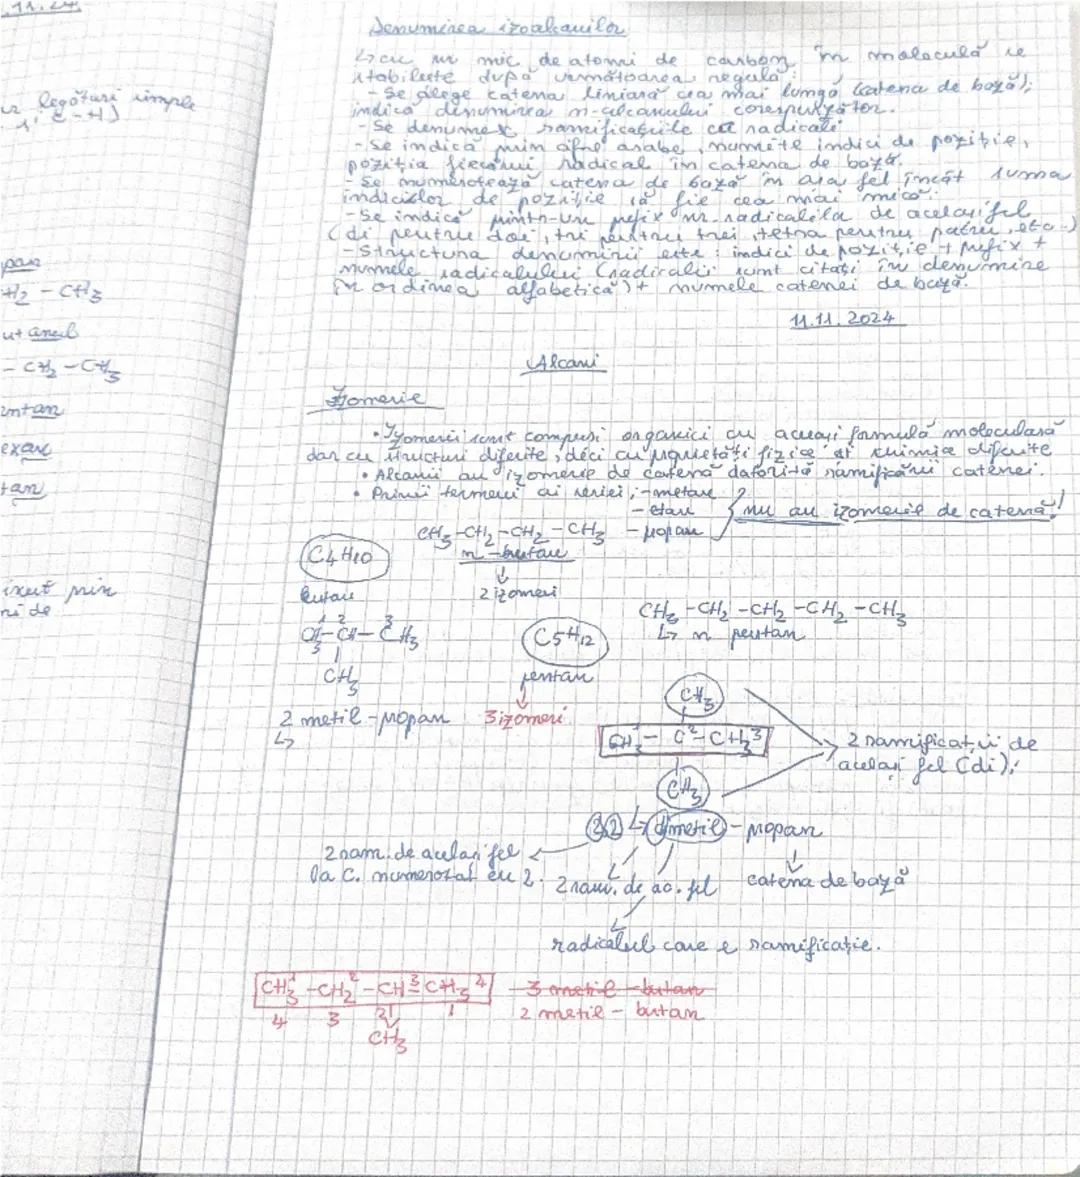 11.24.
legături simple
C-H)
pan
H2 - CH3
utanul
- CH2 - CH3
entan
exan
tan
prin
ni de
Denumirea izoalcanilor
↳ cu nr mic de atomi de carbon în moleculă se
stabilește după următoarea regulă:
- Se alege catena liniară cea mai lungă (catena de bază);
indică denumirea n-alcanului corespunzător.
- Se denumesc ramificațiile ca radicali
- Se indică prin cifre arabe, numite indici de poziție,
poziția fiecărui radical în catena de bază.
- Se numerotează catena de bază în așa fel încât suma
indicilor de poziție să fie cea mai mică.
- Se indică printr-un prefix nr. radicalilor de același fel
(di pentru doi, tri pentru trei, tetra pentru patru, etc.)
- Structura denumirii este: indici de poziție + prefix +
numele radicalului (radicalii sunt citați în denumire
în ordinea alfabetică) + numele catenei de bază.
11.11.2024
Alcani
Izomerie
• Izomerii sunt compuși organici cu aceași formulă moleculară
dar cu structuri diferite, deci cu proprietăți fizice și chimice diferite
• Alcanii au izomerie de catenă datorită ramificării catenei.
• Primii termeni ai seriei: - metan
- etan } nu au izomerie de catenă!
CH3 - CH2 - CH2 - CH3 - propan
C4H10 n-butan
butan 2 izomeri
CH3 - CH2 - CH2 - CH2 - CH3
↳ n pentan
1 2 3
CH3 - CH - CH3 C5H12
|
CH3 pentan
CH3
2 metil-propan 3 izomeri
↳
CH3 1 - C 2 - CH3 3
2 ramificații de
același fel (di);
|
CH3
2,2 ↳ dimetil - propan
2 ram. de același fel
la C. numerotat cu 2. 2 ram. de ac. fel catena de bază
radicalul care e ramificație.
CH3 1 - CH2 2 - CH 3 - CH3 4 3 metil-butan
4 3 2 | 1 2 metil - butan
CH3